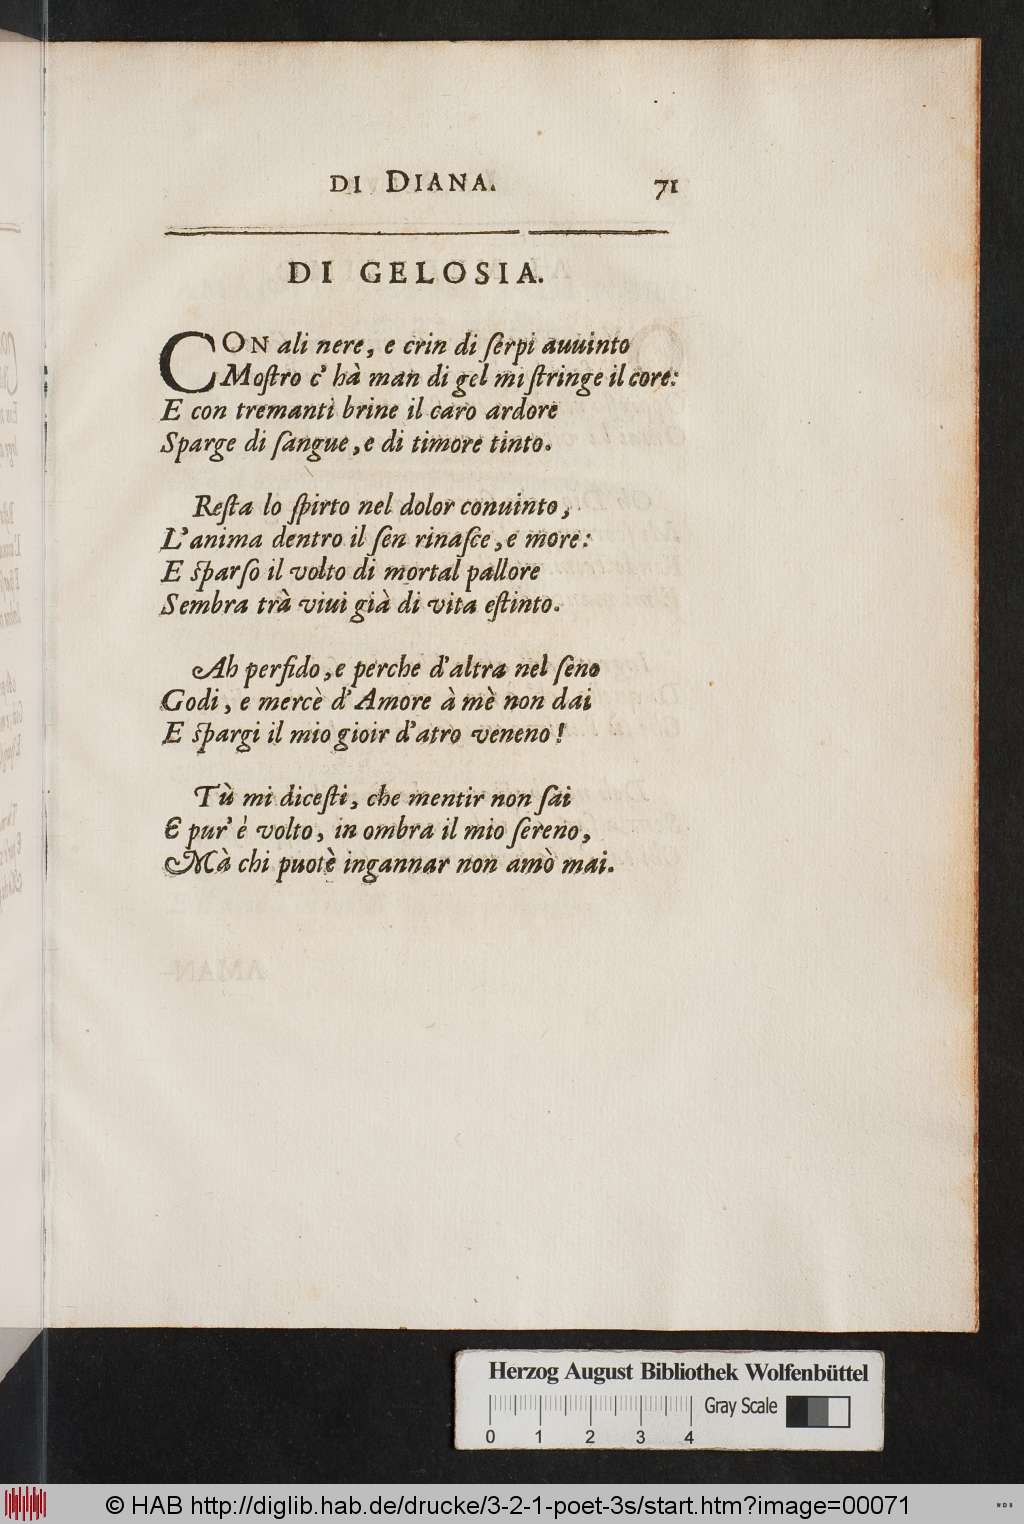 DI DIANA. 71
DI GELOSIA.
CON ali nere, e crin di serpi auuinto
Mostro c' hà man di gel mi stringe il core:
E con tremanti brine il caro ardore
Sparge di sangue, e di timore tinto.
Resta lo spirto nel dolor conuinto,
L'anima dentro il sen rinasce, e more:
E sparso il volto di mortal pallore
Sembra trà viui già di vita estinto.
Ah perfido, e perche d'altra nel seno
Godi, e mercè d'Amore à mè non dai
E spargi il mio gioir d'atro veneno!
Tù mi dicesti, che mentir non sai
E pur' è volto, in ombra il mio sereno,
Mà chi puotè ingannar non amò mai.
Herzog August Bibliothek Wolfenbüttel
Gray Scale
0 1 2 3 4
© HAB http://diglib.hab.de/drucke/3-2-1-poet-3s/start.htm?image=00071